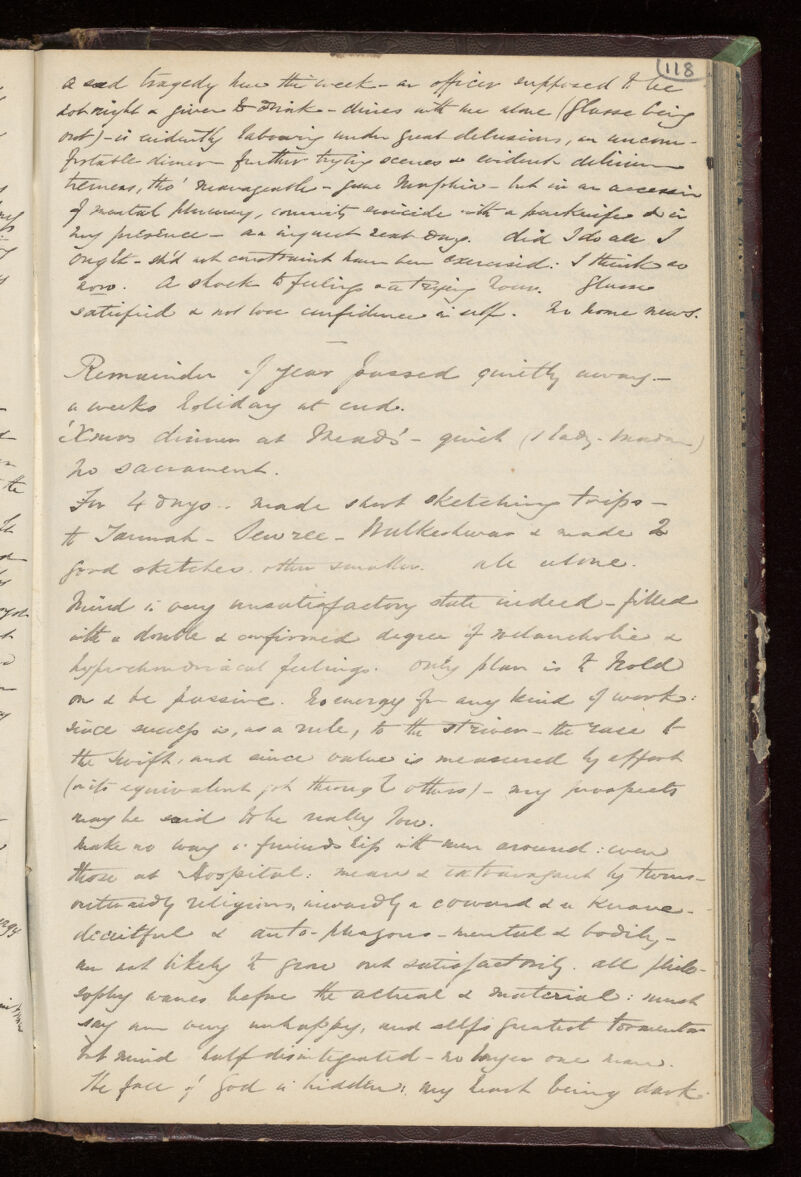 118
a sad tragedy here this week - an officer supposed to be
not right & given to drink - dines with me alone (Glasse being
out) - is evidently labouring under great delusions, an uncom-
fortable dinner further trying scenes & evident delirium
tremens, tho' manageable - gave Morphia - but in an accession
of mental phrensy, commits suicide with a penknife & in
my presence - an inquest next day. Did I do all I
ought - shd not constraint have been exercised: I think so
now. A shock to feelings & a trying hour. Glasse
satisfied & not lose confidence in self. No home news.
Remainder of year passed quietly away -
a weeks holiday at end.
'Xmas dinner at Meads' - quiet (1 lady -
no sacrament.
For 4 days .. made short sketching trips -
to Tannah - Sewree - Walkeshwar & made 2
good sketches. other smaller. all alone.
Mind in very unsatisfactory state indeed - filled
with a double & confirmed degree of melancholic &
hypochondriacal feelings. Only plan is to hold
on & be passive. No energy for any kind of work:
since success is, as a rule, to the striver - the race to
the swift, and since value is measured by effort
(or its equivalent got through others) - my prospects
may be said to be really low.
make no way in friendship with men around: even
those at Hospital: mean & extravagant by turns -
outwardly religious, inwardly a coward & a knave -
deceitful & auto-phagous - mental & bodily -
am not likely to grow out satisfactorily. all philo-
sophy wanes before the actual & material: must
say am very unhappy, and self's greatest tormentor
but mind half disintegrated - no longer one man.
The face of God is hidden, my heart being dark.